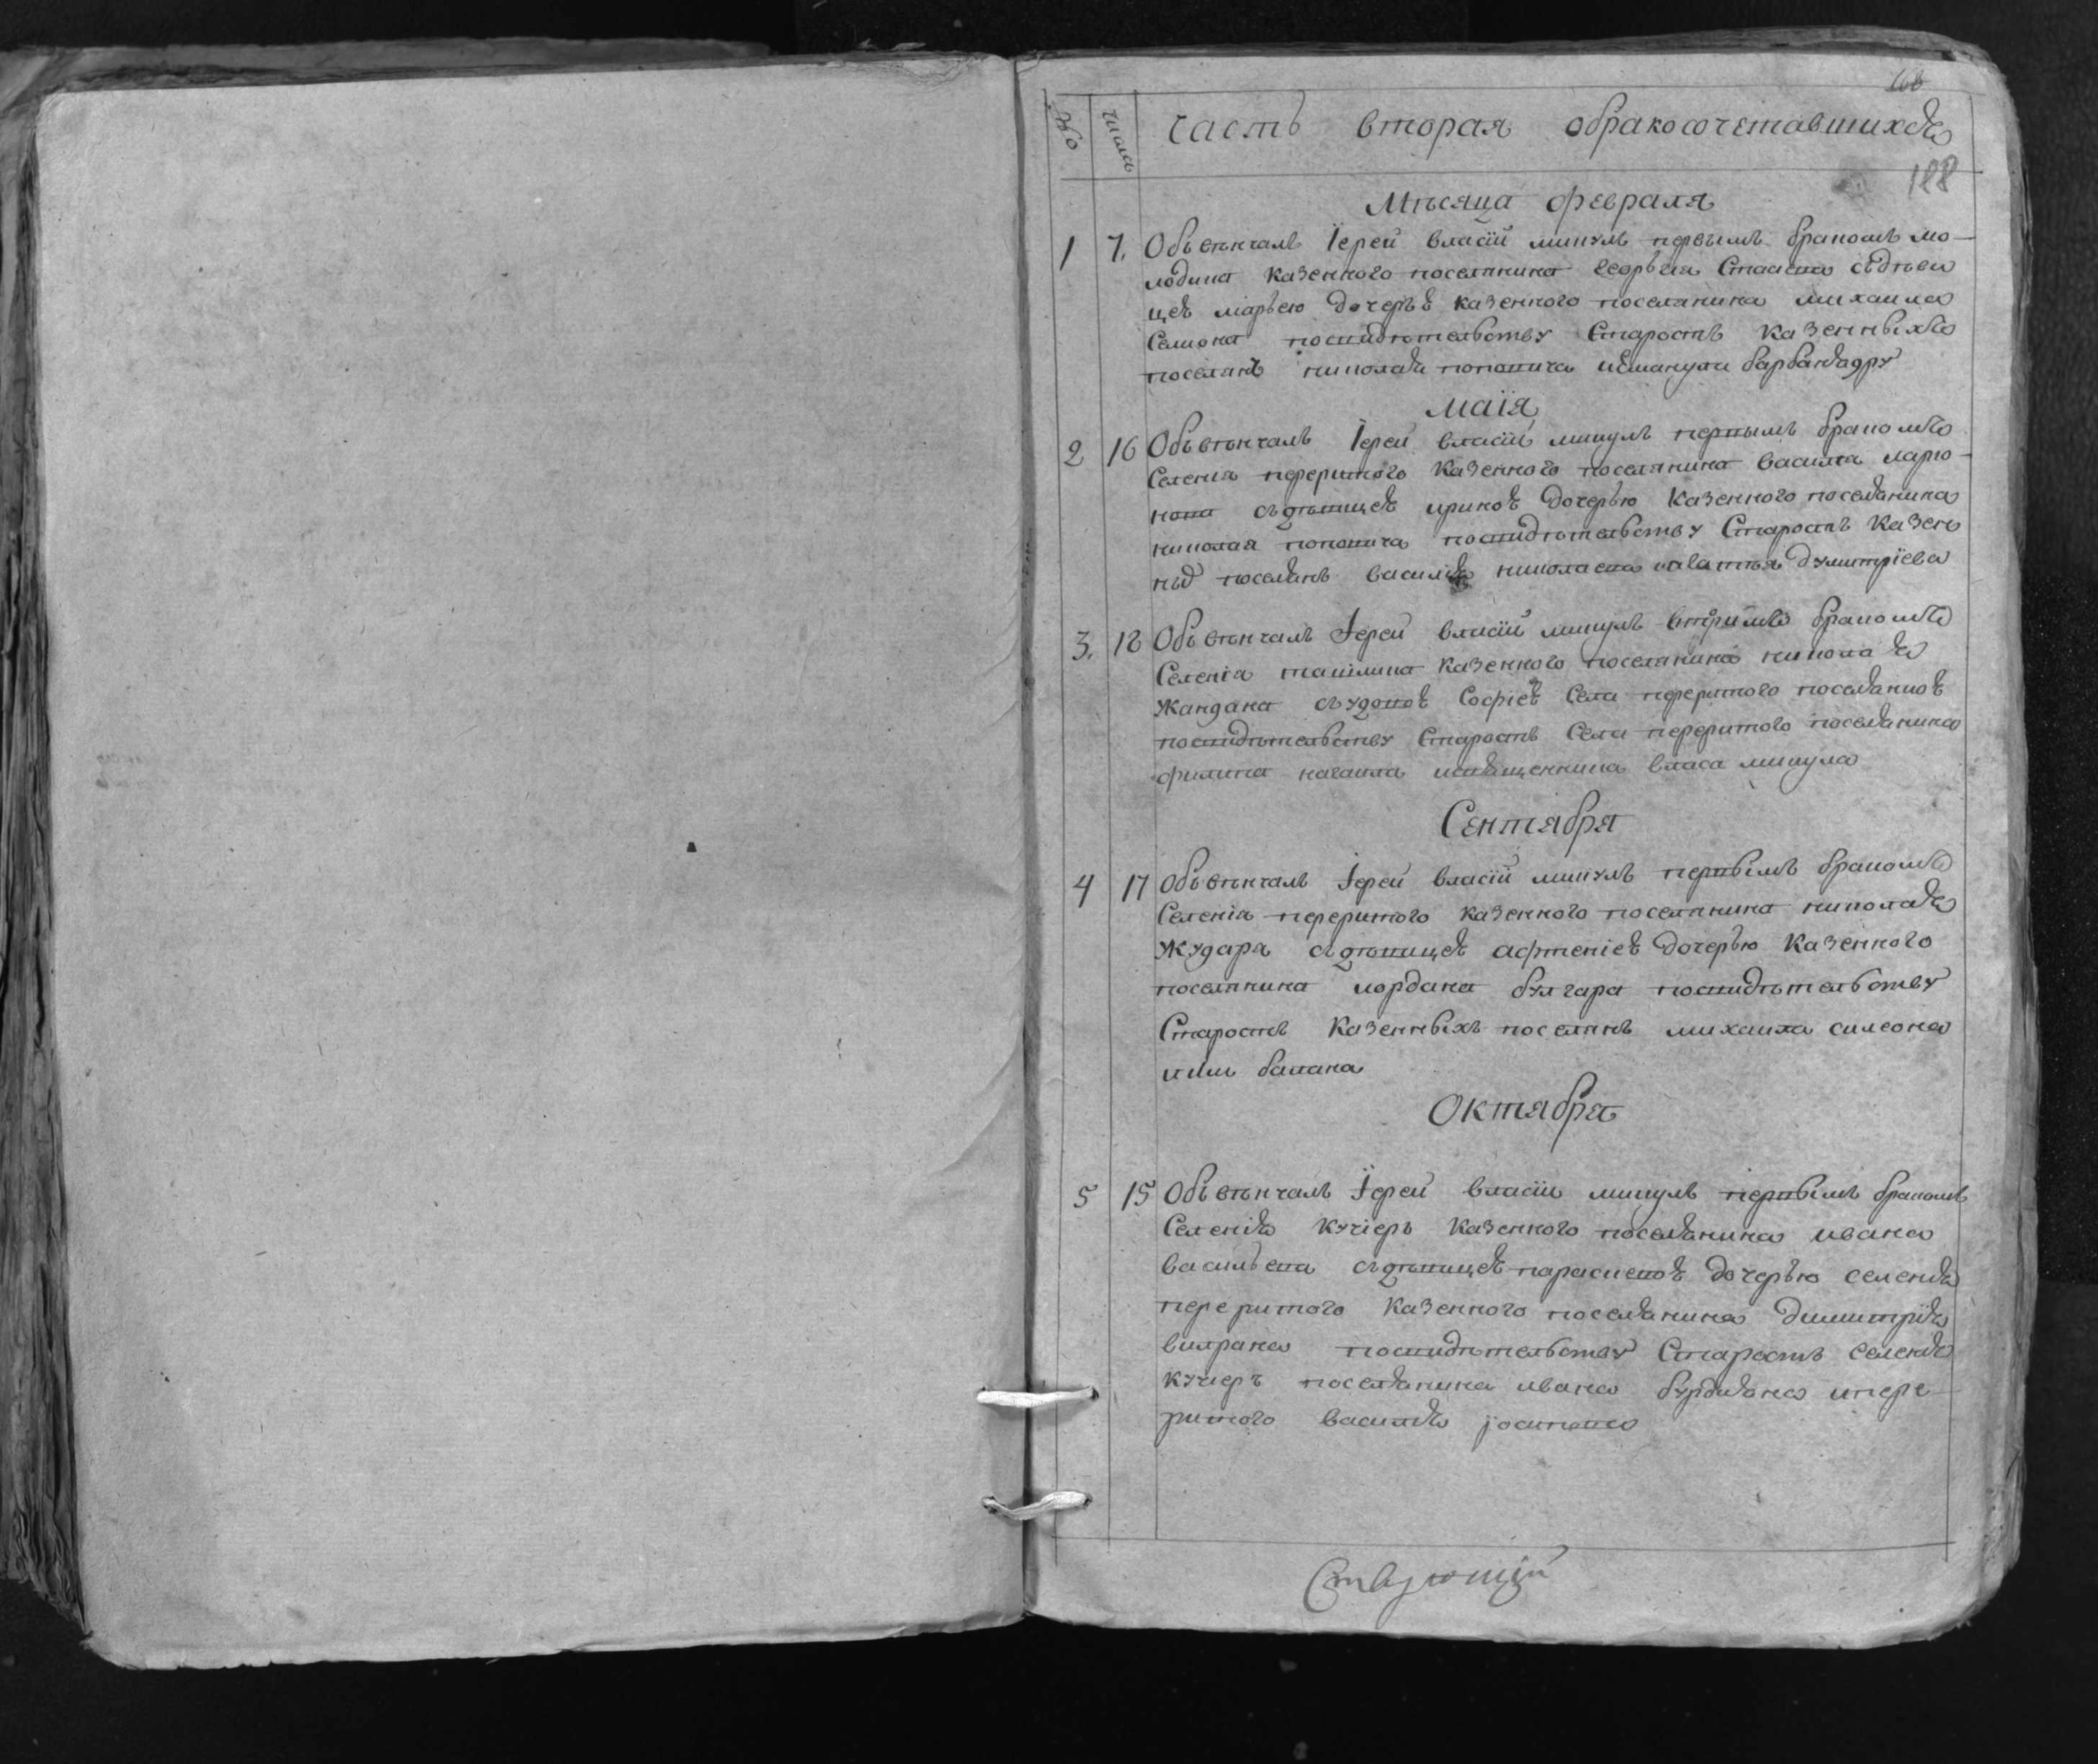 168
№ числа Часть вторая обракосочетавшихся
188
Мѣсяца февраля
1 7. Объвѣнчалъ Іерей власій микулъ первымъ бракомъ мо-
лодика казенного поселянина георьгія Стаова съдѣви
цеѣ марьею дочеръѣ казенного поселянина михаила
Семиона посвидѣтельству Старостъ казенныхъ
поселянъ николая поповича
Маія
2 16 Объвѣнчалъ Іерей власій микулъ первымъ бракомъ
Селенія переритого казенного поселянина василія ларіо-
нова съдѣвицеѣ ириноѣ дочерью казенного поселянина
николая поповича посвидѣтельству Старостъ казен
ных поселянъ василія николаева Думитріева
3. 18 Объвѣнчалъ Іерей власій микулъ вторимъ бракомъ
Селенія ташлика казенного поселянина николая
жандана съудовоѣ Софіеѣ Села переритого поселянкоѣ
посвидѣтельству Старостъ Села переритого поселянина
филипа качаила исвященника власа микула
Сентября
4 17 Объвѣнчалъ Іерей власій микулъ первымъ бракомъ
Селенія переритого казенного поселянина николая
жударя съдѣвицеѣ афтеніеѣ дочерью казенного
поселянина иордана булгара посвидѣтельству
Старостъ казенныхъ поселянъ михаила симеона
илии балана
Октября
5 15 Объвѣнчалъ Іерей власій микулъ первымъ бракомъ
Селенія кугіеръ казенного поселянина ивана
васильева съдѣвицеѣ параскевоѣ дочерью селенія
переритого казенного поселянина димитрія
вилрана посвидѣтельству Старостъ селенія
кугіеръ поселянина ивана бурдиана ипере
ритого василія іосипова